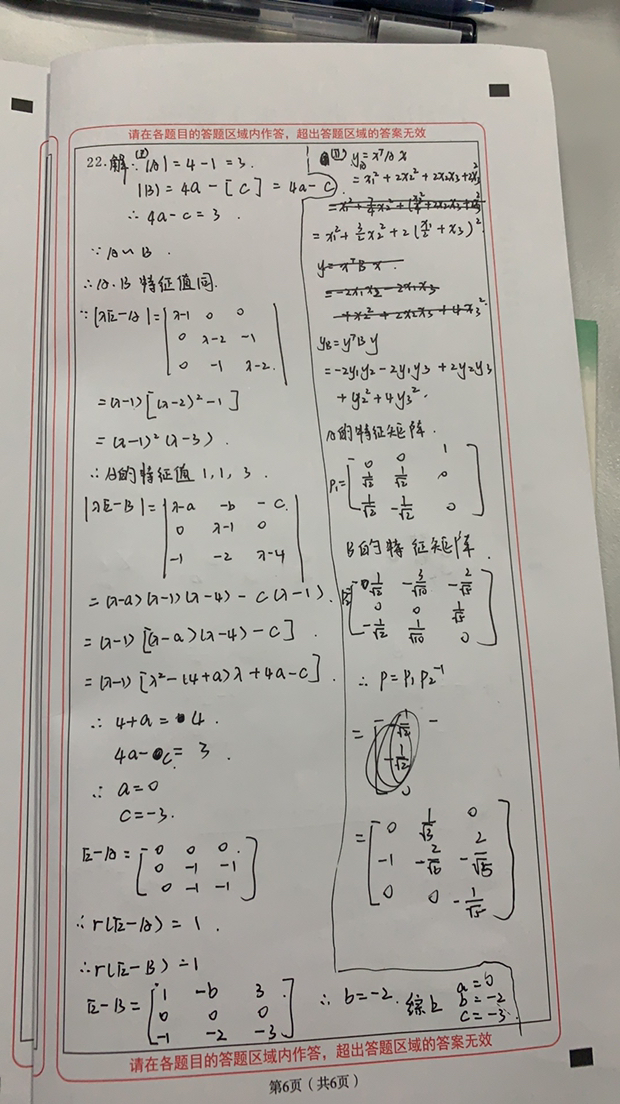 请在各题目的答题区域内作答，超出答题区域的答案无效
22.解 (I) ∵|A| = 4-1 = 3.
|B| = 4a - [c] = 4a-c.
∴ 4a-c = 3
∵ A∽B.
∴ A.B 特征值同.
∵ |λE-A| = | λ-1 0 0
0 λ-2 -1
0 -1 λ-2. |
= (λ-1)[(λ-2)²-1]
= (λ-1)²(λ-3).
∴ A的特征值 1,1,3.
|λE-B| = | λ-a -b -c.
0 λ-1 0
-1 -2 λ-4 |
= (λ-a)(λ-1)(λ-4) - c(λ-1).
= (λ-1)[(λ-a)(λ-4)-c].
= (λ-1)[λ²-(4+a)λ+4a-c].
∴ 4+a = 4.
4a-c = 3.
∴ a=0
c=-3.
E-A = [ 0 0 0.
0 -1 -1
0 -1 -1 ]
∴ r(E-A) = 1.
∴ r(E-B) = 1
E-B = [ 1 -b 3
0 0 0
-1 -2 -3 ]
∴ b=-2. 综上 a=0
b=-2
c=-3.
(II) y_A = xᵀAx
= x₁²+2x₂²+2x₂x₃+2x₃²
= x₁²+3/2x₂²+2(x₁/2+x₃)²
y=xᵀBx.
= -2x₁x₂-2x₁x₃
+x₂²+2x₂x₃+4x₃²
y_B = yᵀBy
= -2y₁y₂-2y₁y₃+2y₂y₃
+y₂²+4y₃².
A的特征矩阵.
P₁ = [ 0 0 1
1/√2 1/√2 0
1/√2 -1/√2 0 ]
B的特征矩阵.
1/√2 -3/√10 -2/√5
0 0 1/√5
-1/√2 1/√10 0 ]
∴ P = P₁P₂⁻¹
= [ 0 1/√3 0
-1 -2/√6 -2/√5
0 0 -1/√5 ]
请在各题目的答题区域内作答，超出答题区域的答案无效
第6页（共6页）